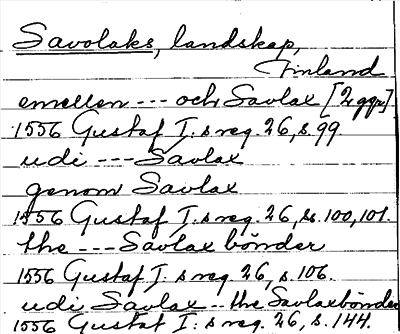 Savolaks, landskap,
Finland
emellen --- och Savlax [2 ggr].
1556 Gustaf I:s reg. 26, s. 99.
udi --- Savlax
genom Savlax
1556 Gustaf I:s reg. 26, ss. 100, 101.
the --- Savlax bönder
1556 Gustaf I:s reg. 26, s. 106.
udi Savlax -- the Savlaxbönder
1556 Gustaf I:s reg. 26, s. 144.